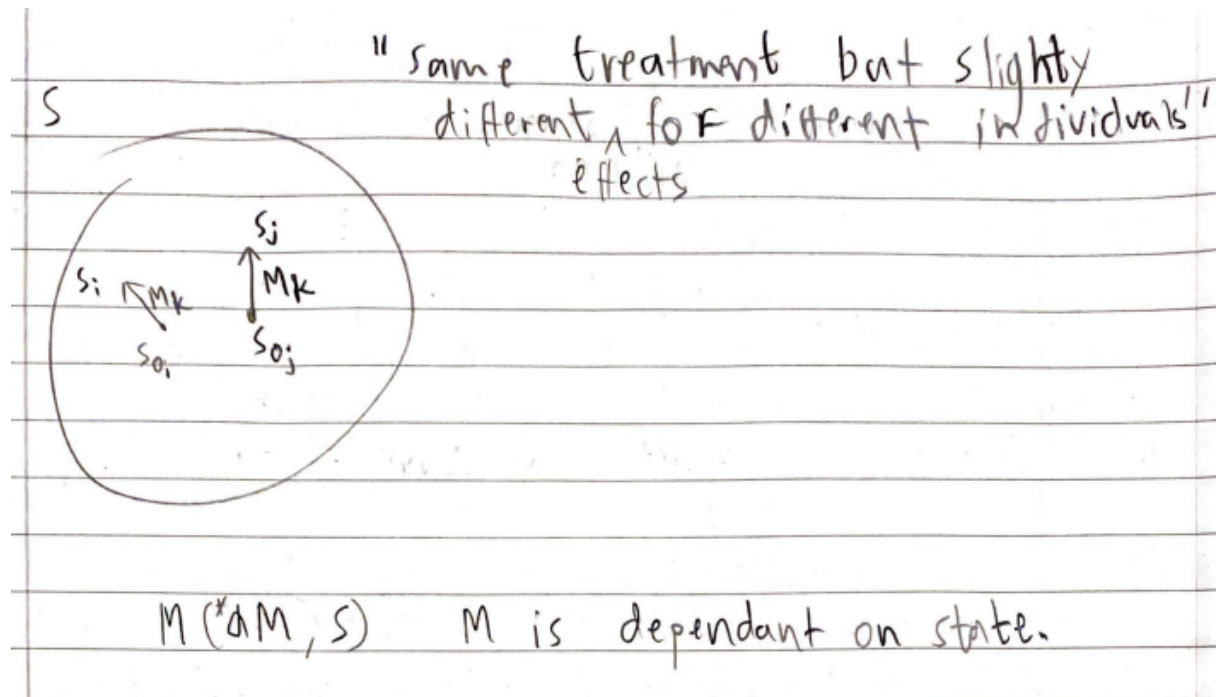 "same treatment but slighty
S
different ^ for different individuals"
effects
Sj
Si Mk Mk
S0i S0j
M( , S) M is dependant on state.